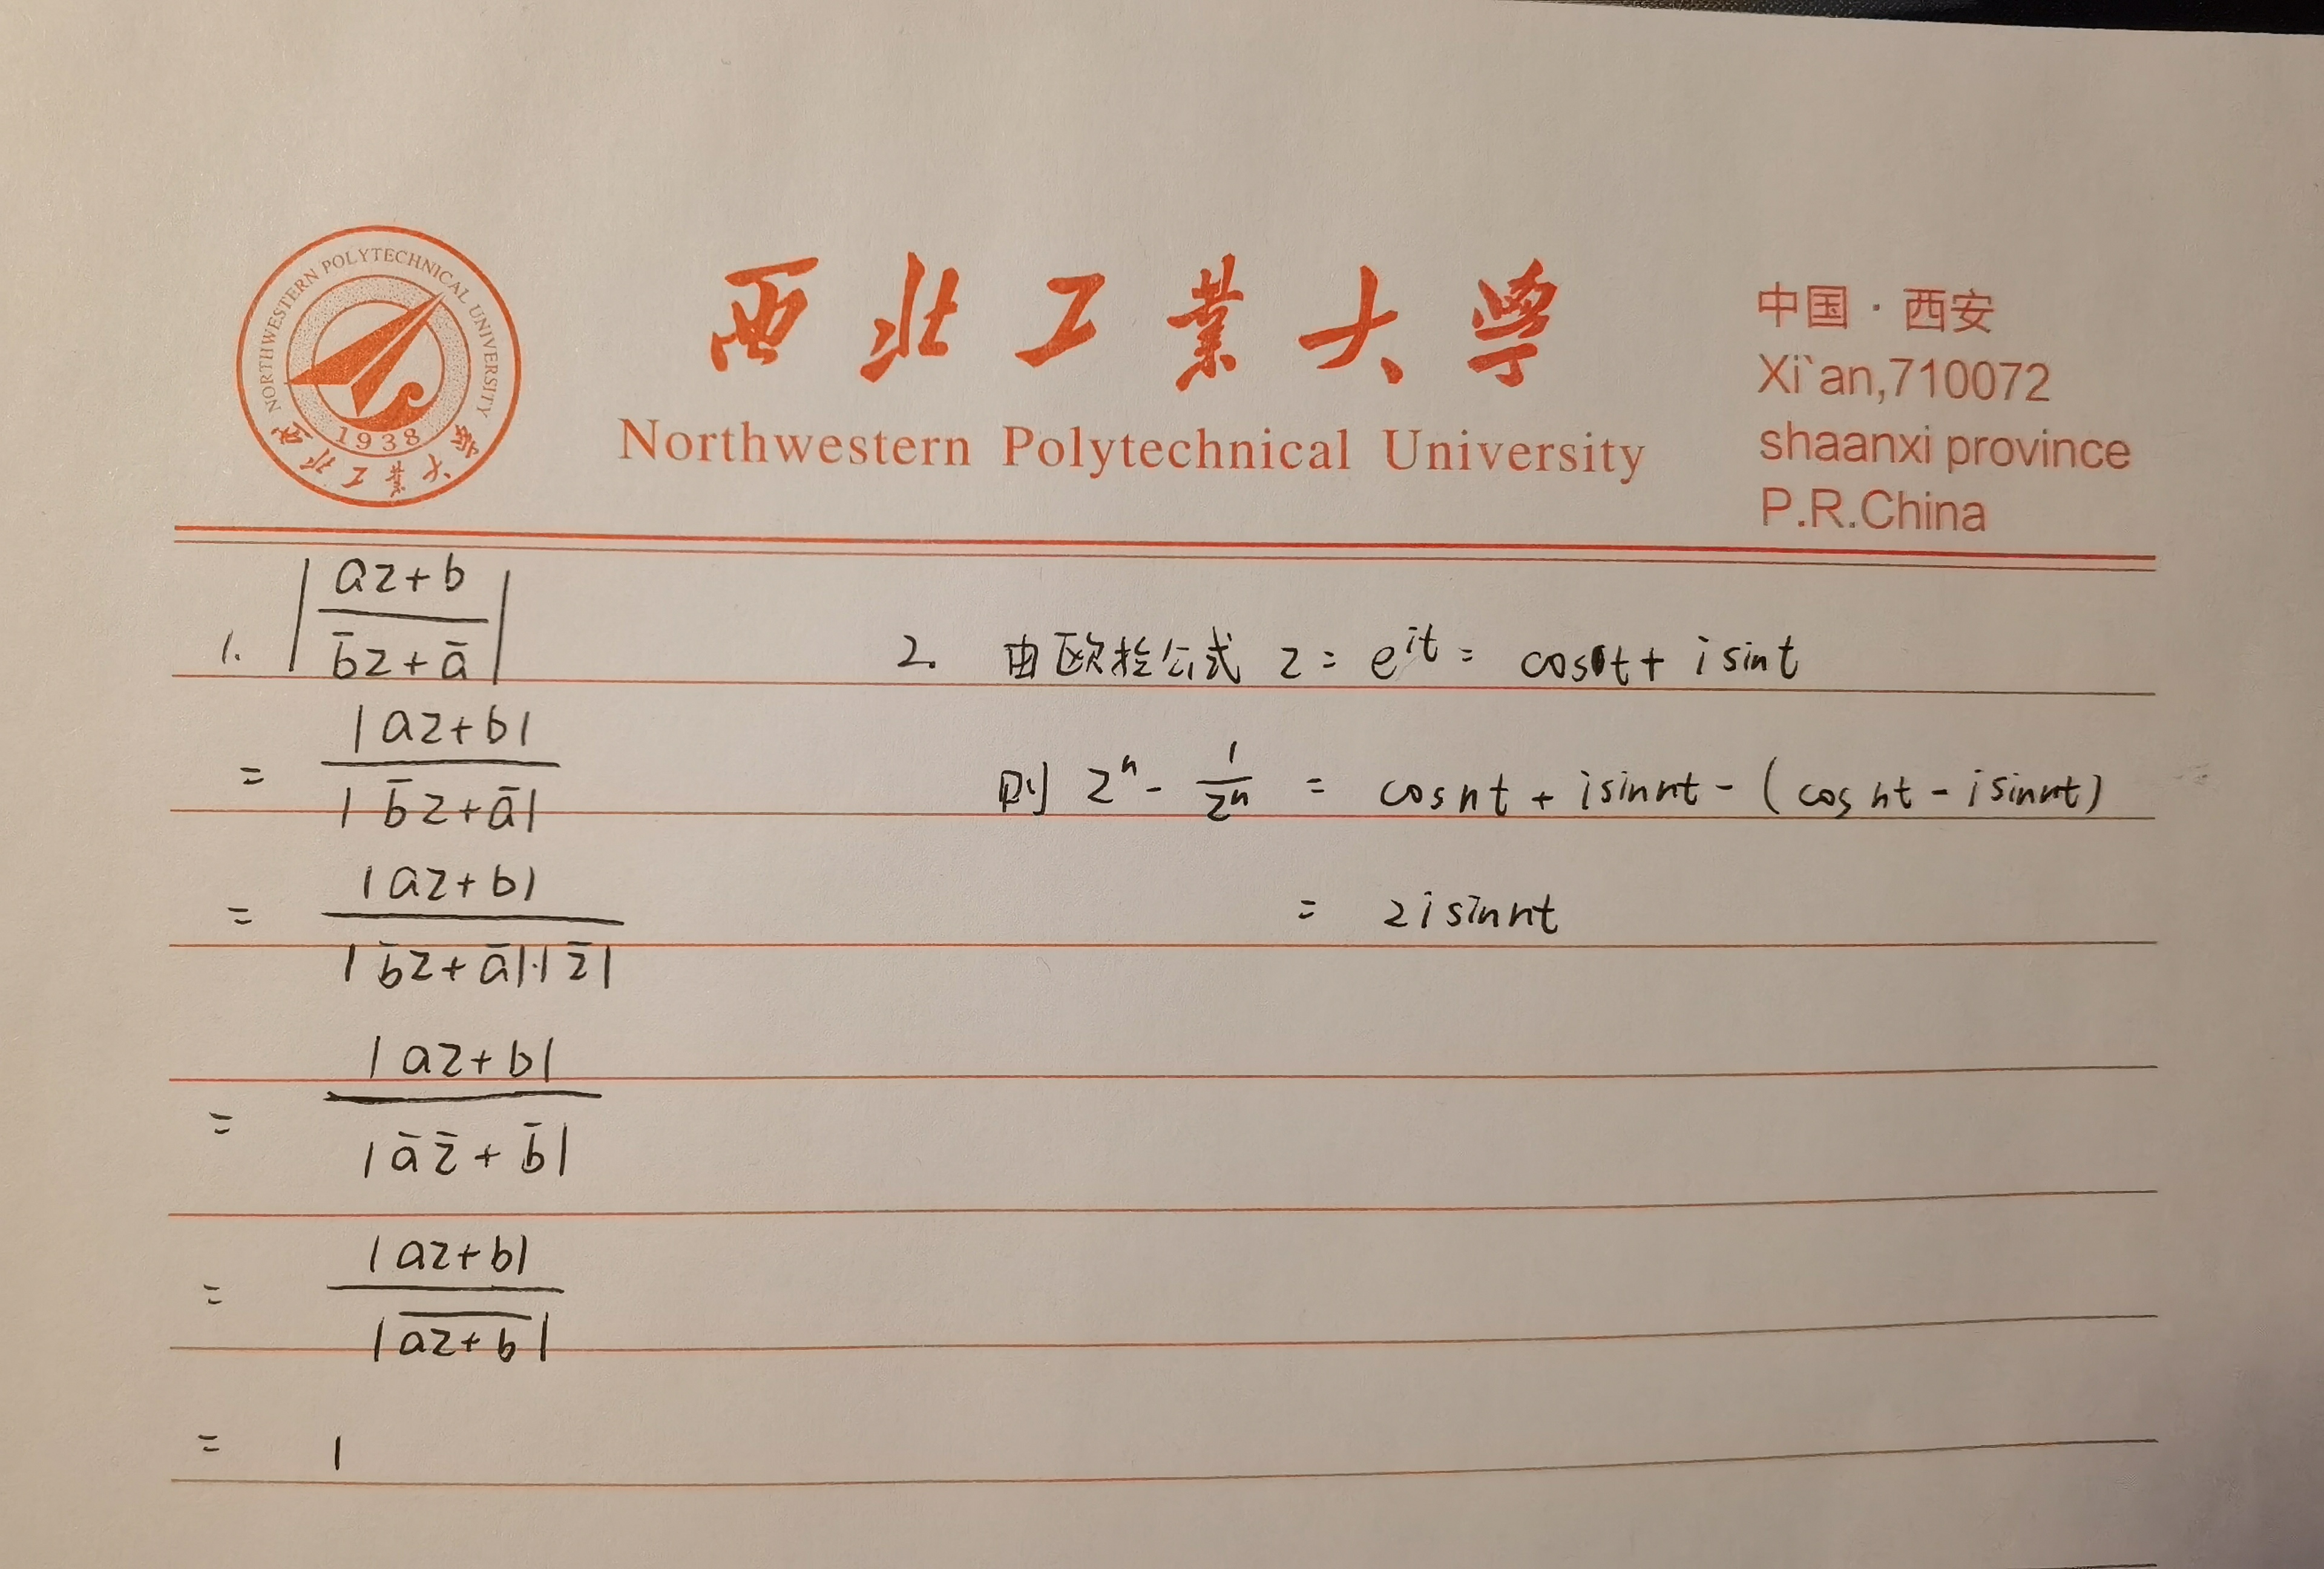 NORTHWESTERN POLYTECHNICAL UNIVERSITY
1938
西北工業大學
西北工業大學
Northwestern Polytechnical University
中国·西安
Xi`an,710072
shaanxi province
P.R.China
1. | (az+b)/(b̄z+ā) |
= |az+b| / |b̄z+ā|
= |az+b| / |b̄z+ā|·|z̄|
= |az+b| / |āz̄+b̄|
= |az+b| / |\overline{az+b}|
= 1
2. 由欧拉公式 z = e^{it} = cost + i sint
则 z^n - 1/z^n = cosnt + isinnt - (cosnt - isinnt)
= 2isinnt